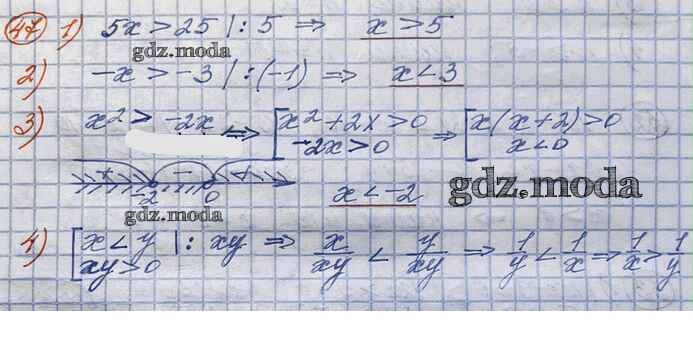 47 1) 5x > 25 |: 5 ⇒ x > 5
gdz.moda
2) -x > -3 |: (-1) ⇒ x < 3
3) x² > -2x ⇒ [x² + 2x > 0 ⇒ [x(x+2) > 0
-2x > 0 x < 0
+ - +
-2 0 x < -2
gdz.moda
gdz.moda
4) [x < y |: xy ⇒ x/xy < y/xy ⇒ 1/y < 1/x ⇒ 1/x > 1/y
xy > 0